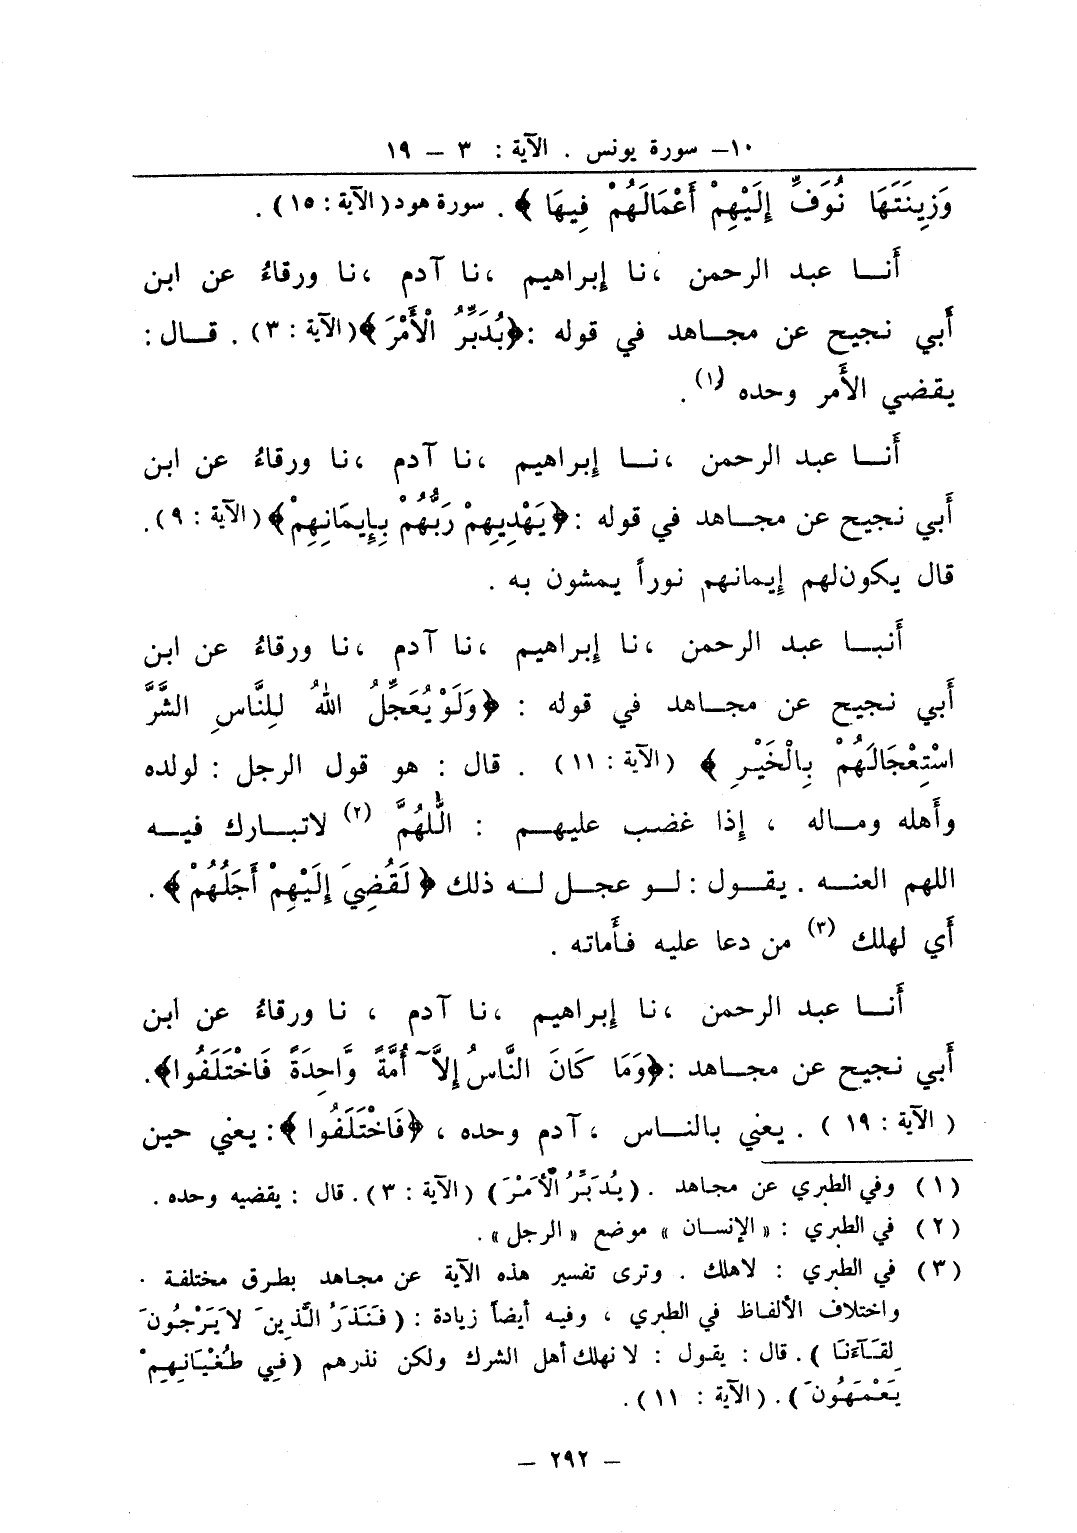 ١٠- سورة يونس . الآية : ٣ - ١٩
وَزِينَتَهَا نُوَفِّ إِلَيْهِمْ أَعْمَالَهُمْ فِيهَا ﴾ . سورة هود (الآية : ١٥) .
أَنـا عبد الرحمن ، نا إبراهيم ، نا آدم ، نا ورقاءُ عن ابن
أَبي نجيح عن مجـاهد في قوله : ﴿يُدَبِّرُ الْأَمْرَ﴾ (الآية : ٣) . قـال :
يقضي الأَمر وحده (١) .
أَنـا عبد الرحمن ، نـا إبراهيم ، نا آدم ، نا ورقاءُ عن ابن
أَبي نجيح عن مجـاهد في قوله : ﴿يَهْدِيهِمْ رَبُّهُمْ بِإِيمَانِهِمْ﴾ (الآية : ٩) .
قال يكون لهم إيمانهم نوراً يمشون به .
أَنبـا عبد الرحمن ، نا إبراهيم ، نا آدم ، نا ورقاءُ عن ابن
أَبي نجيح عن مجـاهد في قوله : ﴿وَلَوْ يُعَجِّلُ اللهُ لِلنَّاسِ الشَّرَّ
اسْتِعْجَالَهُمْ بِالْخَيْرِ ﴾ (الآية : ١١) . قال : هو قول الرجل : لولده
وأَهله ومـاله ، إذا غضب عليهـم : اللَّهُمَّ (٢) لاتبـارك فيـه
اللهم العنـه . يقـول : لـو عجـل لـه ذلك ﴿ لَقُضِيَ إِلَيْهِمْ أَجَلُهُمْ ﴾ .
أَي لهلك (٣) من دعا عليه فأَماته .
أَنـا عبد الرحمن ، نا إبراهيم ، نا آدم ، نا ورقاءُ عن ابن
أَبي نجيح عن مجـاهد : ﴿وَمَا كَانَ النَّاسُ إِلاَّ أُمَّةً وَّاحِدَةً فَاخْتَلَفُوا﴾ .
( الآية : ١٩ ) . يعني بالنـاس ، آدم وحده ، ﴿فَاخْتَلَفُوا ﴾ : يعني حين
(١) وفي الطبري عن مجاهد . (يُدَبِّرُ الْأَمْرَ) (الآية : ٣) . قال : يقضيه وحده .
(٢) في الطبري : « الإنسـان » موضع « الرجل » .
(٣) في الطبري : لاهلك . وترى تفسير هذه الآية عن مجاهد بطرق مختلفة .
واختلاف الألفاظ في الطبري ، وفيه أيضاً زيادة : (فَنَذَرُ الَّذِينَ لاَ يَرْجُونَ
لِقَـآءَنَا ) . قال : يقول : لا نهلك أهل الشرك ولكن نذرهم (فِي طُغْيَانِهِمْ
يَعْمَهُونَ ) . (الآية : ١١) .
- ٢٩٢ -